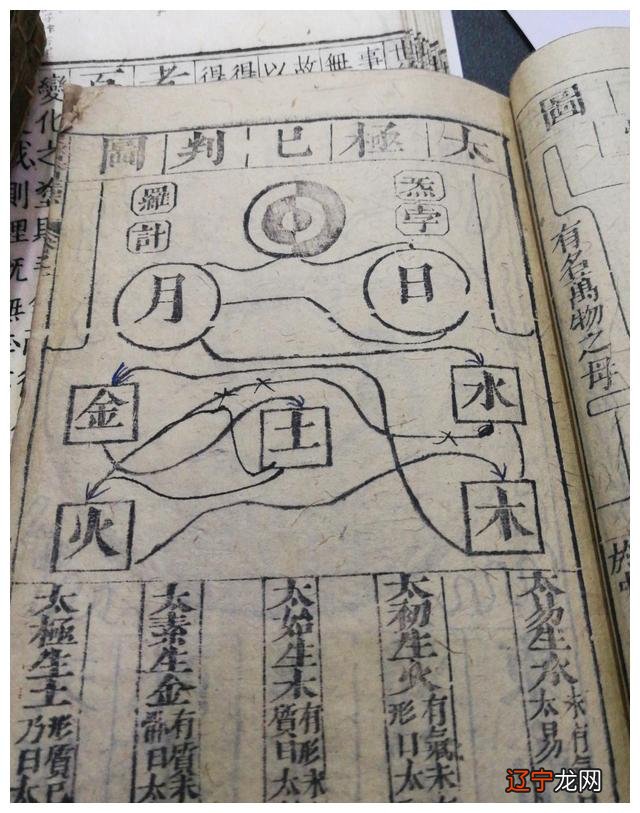 圖
有名萬物之母
事無故以得得
太極已判圖
炁孛
羅計
日
月
水
金
土
木
火
太易生水 未有氣 太易
太初生火 有氣未 形曰太
太始生木 有形未 質曰太
太素生金 有質未
太極生土 形質已 乃曰太
變化之
則理既無
辽宁龙网